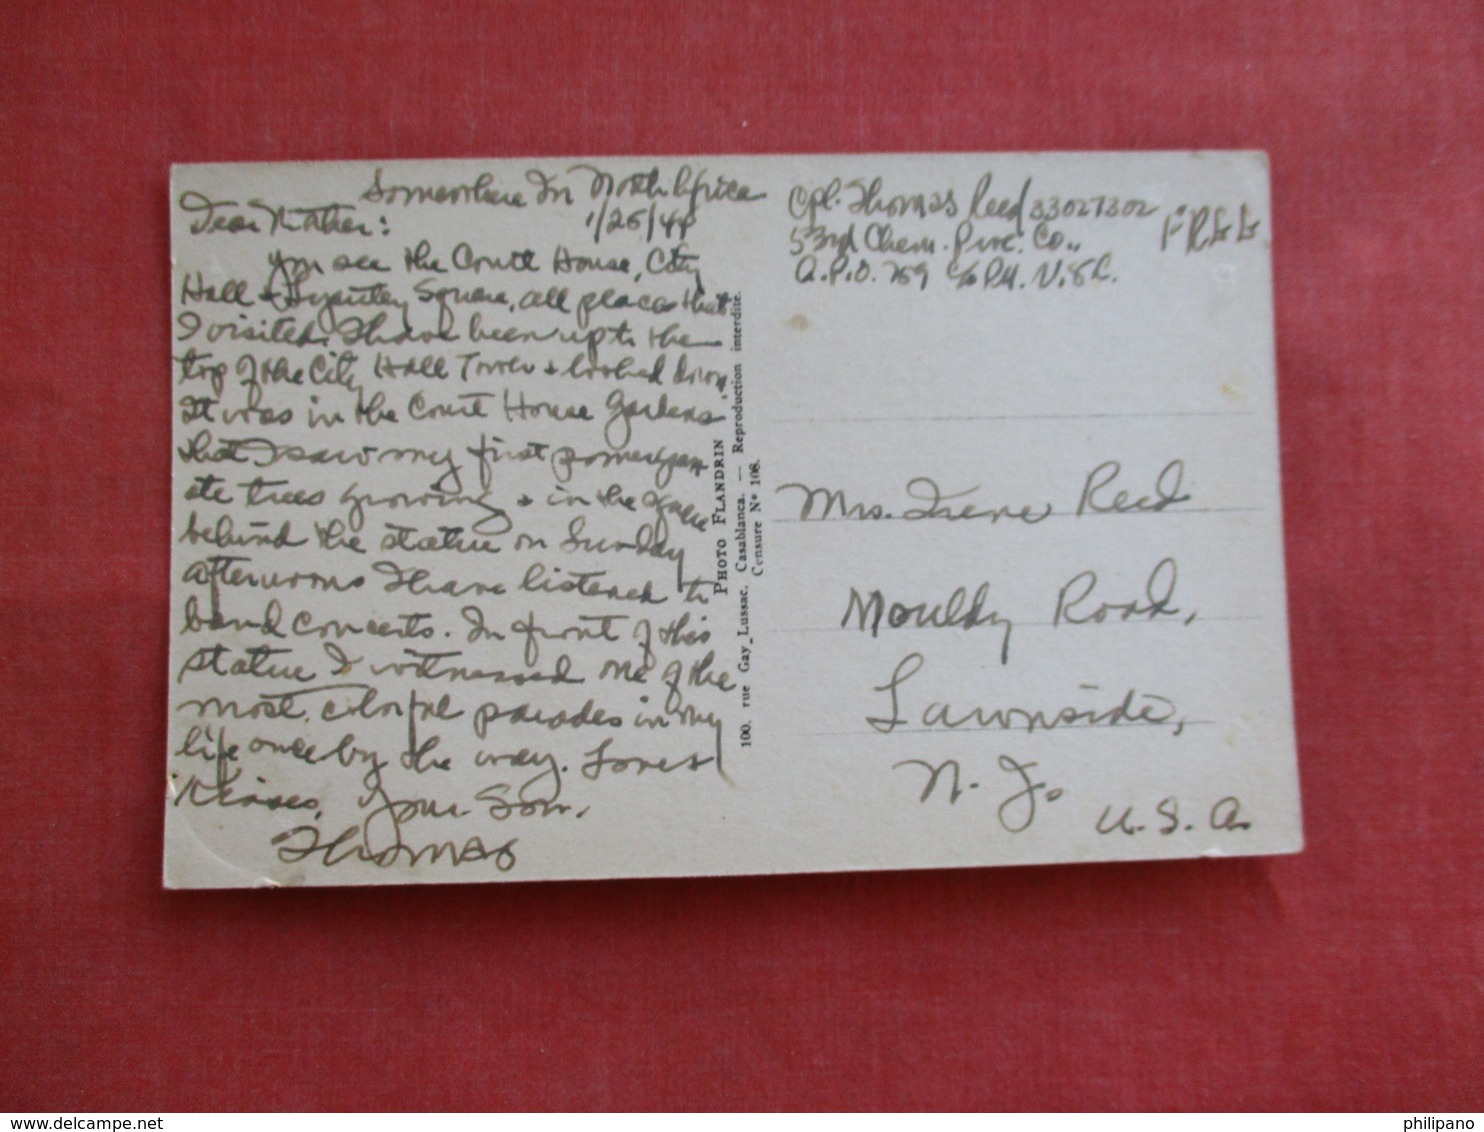 Somewhere In North Africa
1/25/44
Dear Mother:
You see the Court House, City
Hall + Lyautey Square, all places that
I visited. I have been up to the
top of the City Hall Tower + looked down.
It was in the Court House gardens
that I saw my first pomegran-
ate trees growing + in the
behind the statue on Sunday
afternoons I have listened to
band concerts. In front of this
statue I witnessed one of the
most colorful parades in my
life once by the way. Love +
Kisses, Your Son,
Thomas
PHOTO FLANDRIN
100, rue Gay_Lussac, Casablanca. — Reproduction interdite.
Censure N° 108.
Cpl. Thomas Reed 33027302
53rd Chem. Proc. Co.,
A.P.O. 759 c/o P.M. N.Y.C.
FREE
Mrs. Irene Reed
Mouldy Road,
Lawnside,
N. J.
U. S. A.
http://www.delcampe.net
philipano